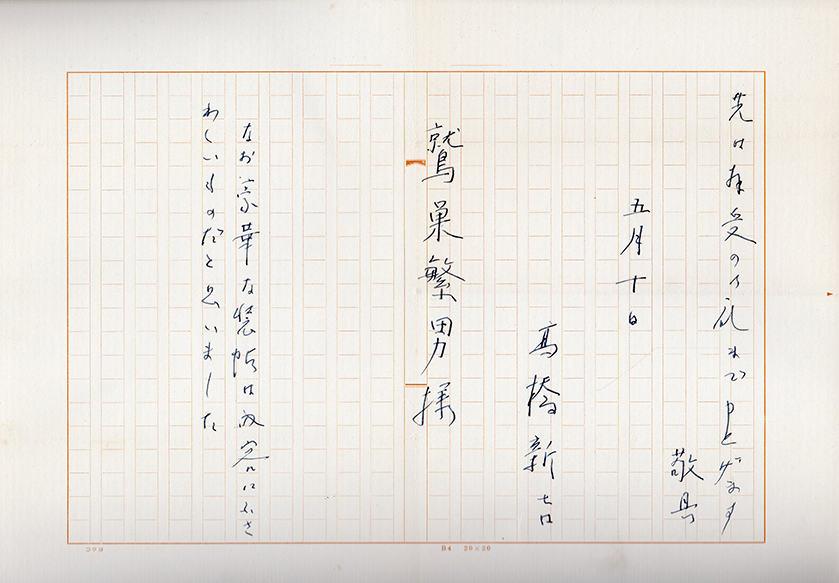 先は拝受の御礼まで申上げます
敬具
五月十日
高橋新吉
鷲巣繁男様
なお豪華な装幀は内容にふさ
わしいものだと思いました
コクヨ
B4 20×20